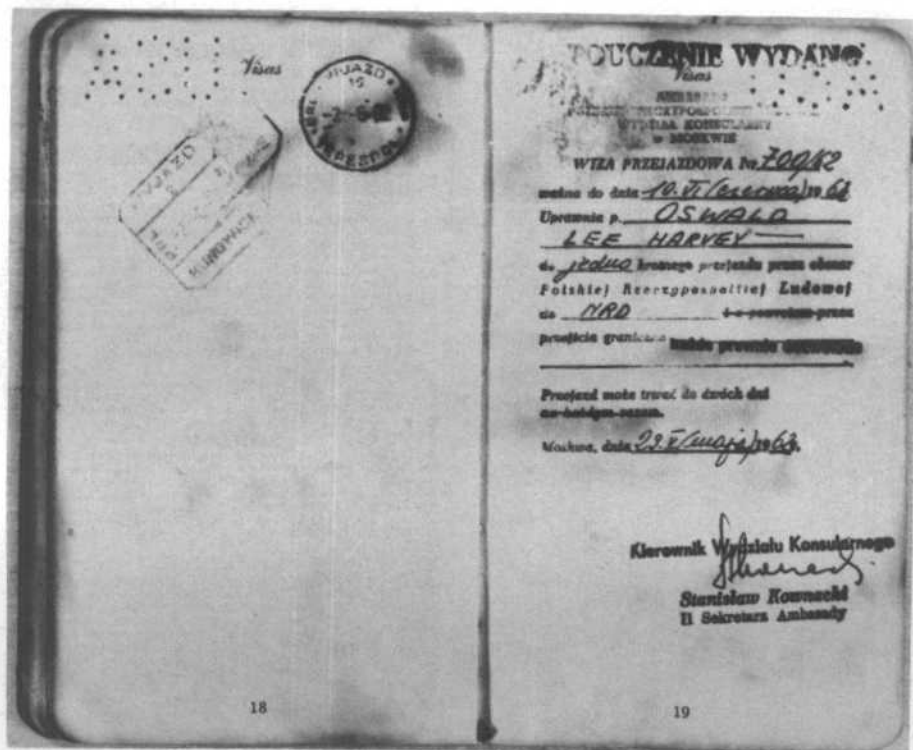 Visas
WJAZD
TERESPOL
18
POUCZENIE WYDANO
Visas
AMBASADA
WYDZIAŁ KONSULARNY
w MOSKWIE
WIZA PRZEJAZDOWA Nr 700/62
ważna do dnia 10.VI (czerwca) 19 62
Uprawnia p. OSWALD
LEE HARVEY
do jedno krotnego przejazdu przez obszar
Polskiej Rzeczypospolitej Ludowej
do NRD
przejścia graniczne
Przejazd może trwać do dwóch dni
za każdym razem.
Moskwa, dnia 29.V (maja) 19 62.
Kierownik Wydziału Konsularnego
Stanisław Kownacki
II Sekretarz Ambasady
19